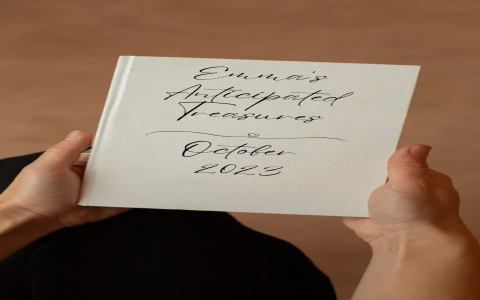 Emma's
Anticipated
Treasures
October
2023